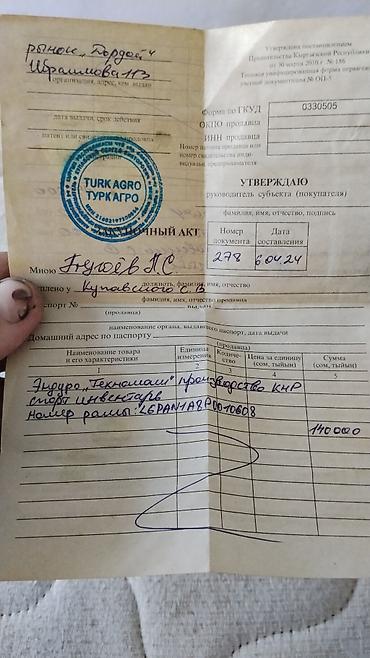 рынок "Дордой"
Ибраимова 113
организация, адрес, кем выдан
дата выдачи, срок действия
Утверждена постановлением
Правительства Кыргызской Республики
от 30 марта 2010 г. № 186
Типовая унифицированная форма первичной
учетной документации № ОП-5
Форма по ГКУД 0330505
ОКПО продавца
ИНН продавца
Номер патента продавца или
номер свидетельства индивидуального
предпринимателя
TURK AGRO
ТУРК АГРО
УТВЕРЖДАЮ
руководитель субъекта (покупателя)
фамилия, имя, отчество, подпись
ЗАКУПОЧНЫЙ АКТ
Номер документа
Дата составления
278
6 04 24
Мною
должность, фамилия, имя, отчество
Куплено у Купавского С.В
фамилия, имя, отчество продавца
Паспорт №
(продавца)
наименование органа, выдавшего паспорт, дата выдачи
Домашний адрес по паспорту
(продавца)
Наименование товара и его характеристики
Единица измерения
Количество
Цена за единицу (сом, тыйын)
Сумма (сом, тыйын)
1 2 3 4 5
Эндуро "Техномаш" производство КНР
спорт инвентарь
номер рамы:
140000